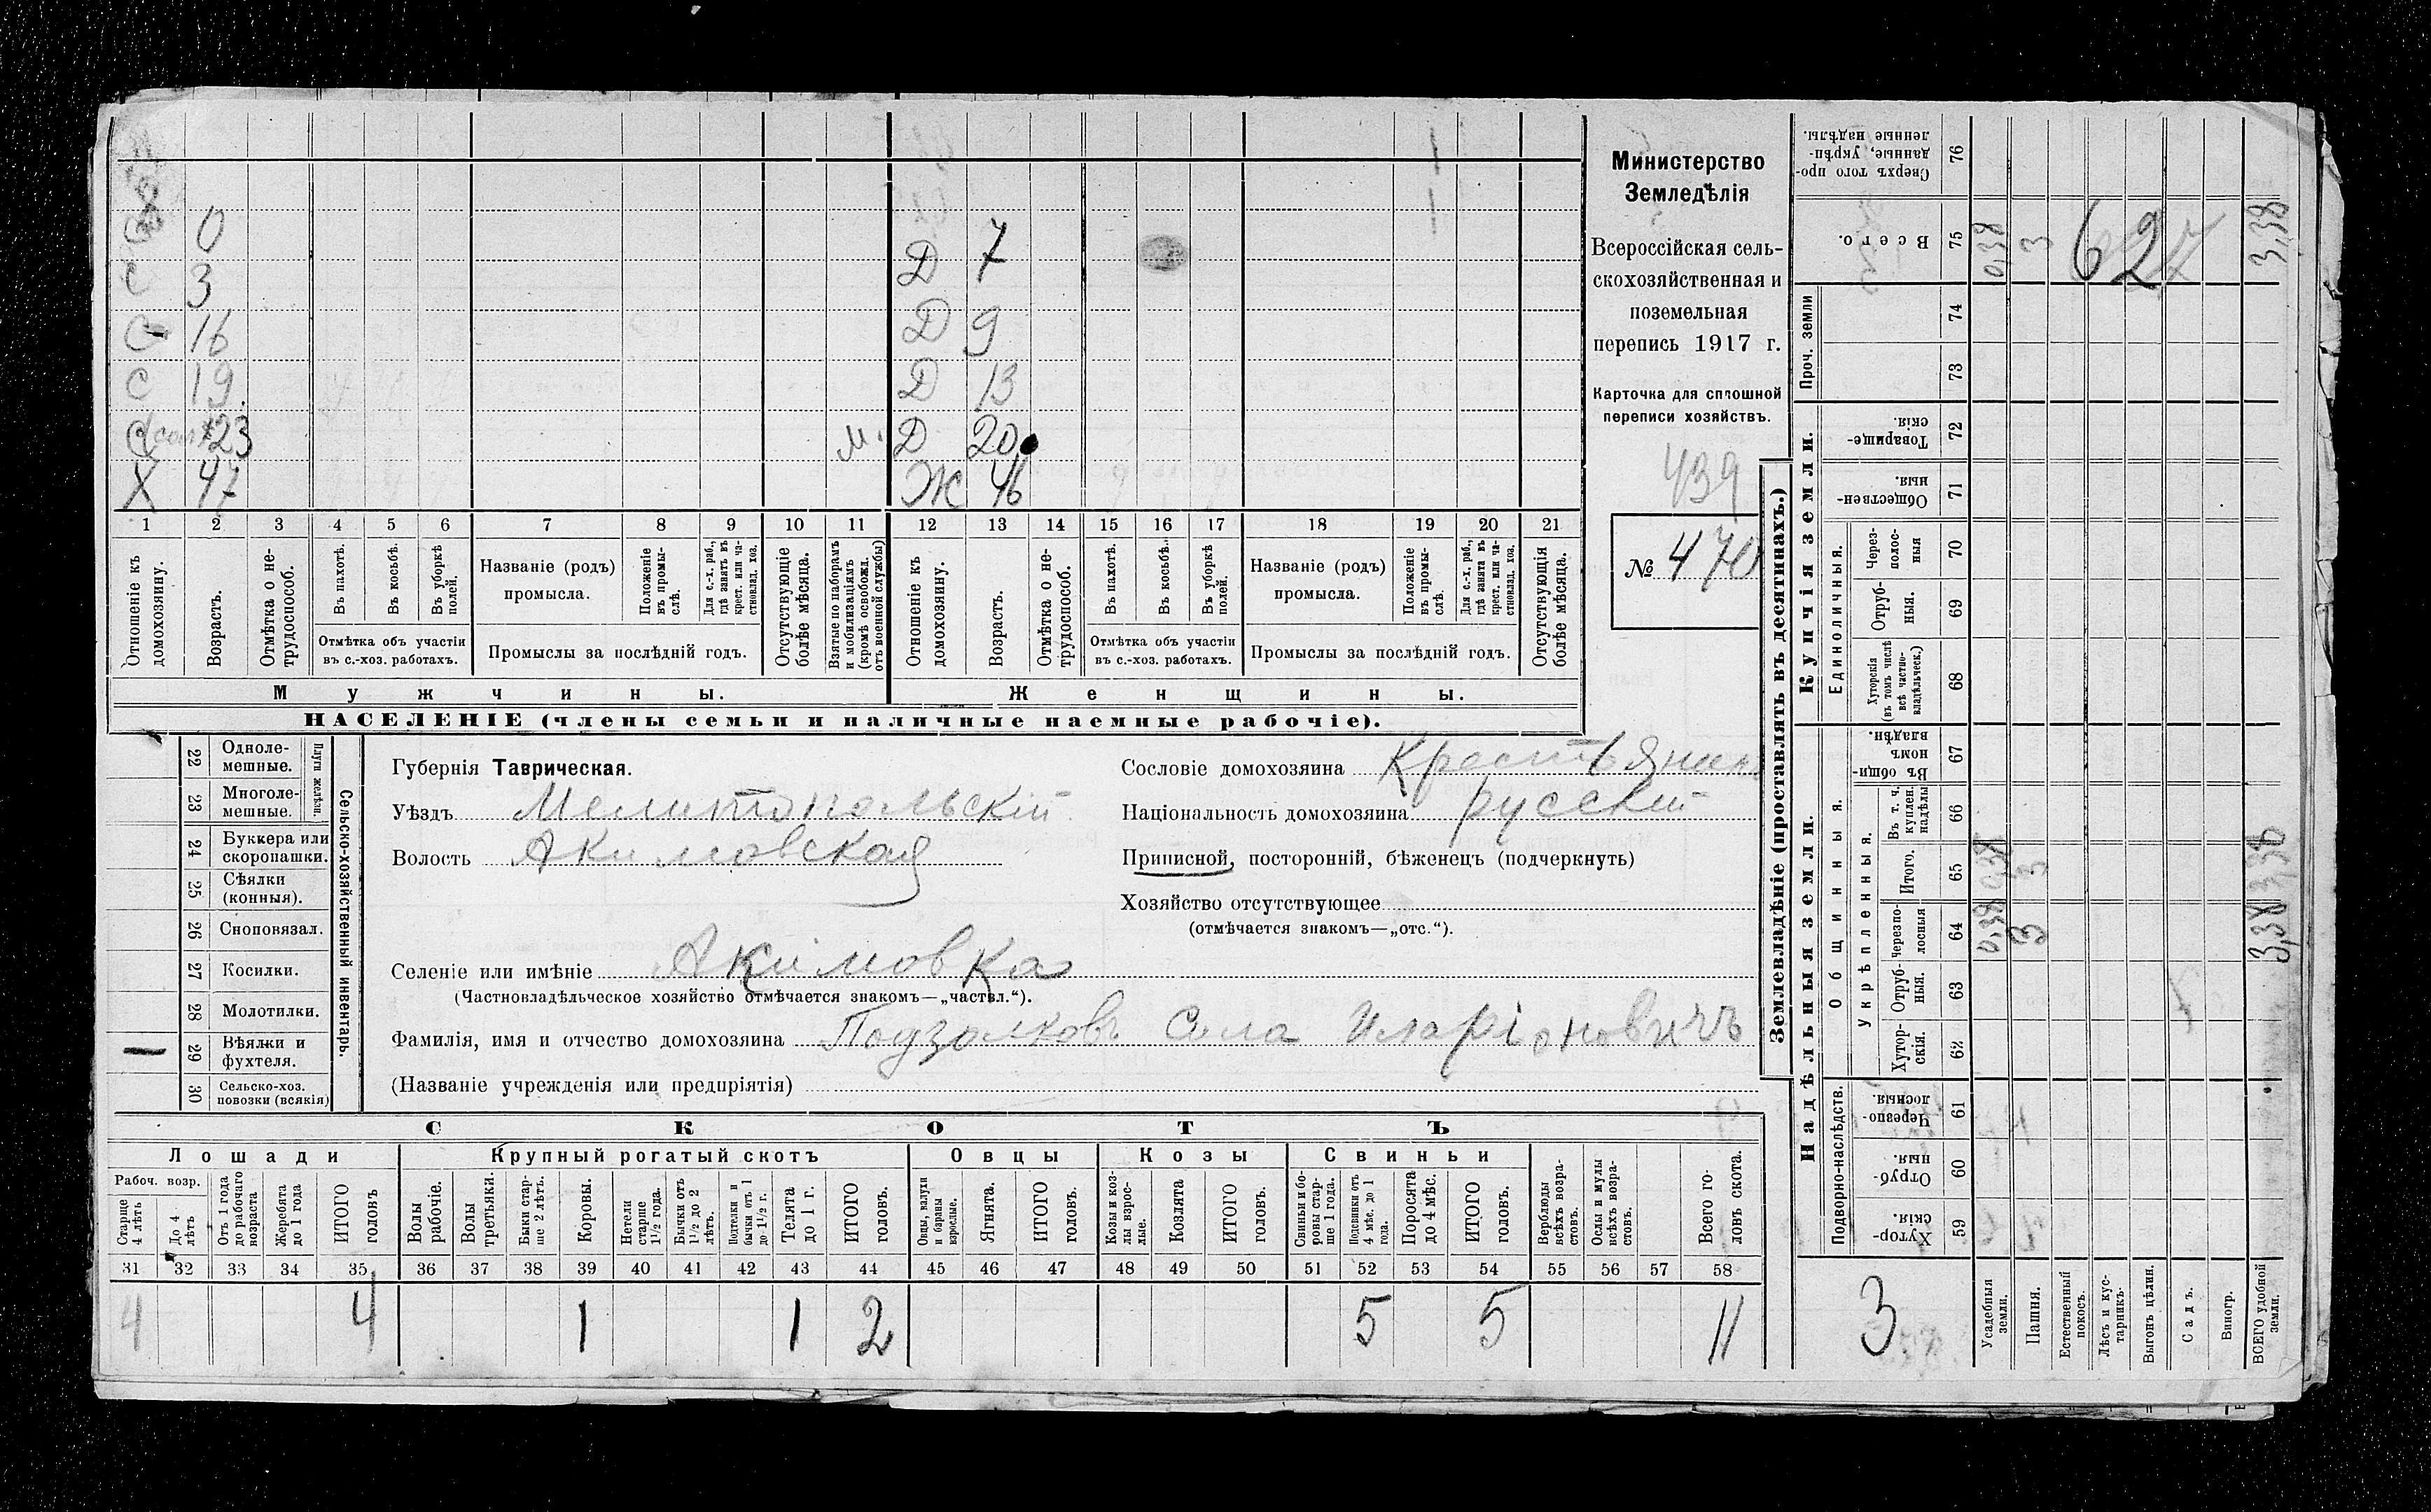 Министерство
Земледѣлія
Всероссійская сель-
скохозяйственная и
поземельная
перепись 1917 г.
Карточка для сплошной
переписи хозяйствъ.
439
№ 470
С 0
С 3 Д 7
С 16 Д 9
С 19 Д 13
С 23 М. Д 20
Х 47 Ж 46
1 2 3 4 5 6 7 8 9 10 11 12 13 14 15 16 17 18 19 20 21
Отношеніе къ домохозяину.
Возрастъ.
Отмѣтка о не-трудоспособ.
Въ пахотѣ.
Въ косьбѣ.
Въ уборкѣ полей.
Отмѣтка объ участіи въ с.-хоз. работахъ.
Названіе (родъ) промысла.
Положеніе въ промы-слѣ.
Для с.-х. раб., гдѣ занятъ въ крест. или ча-стновлад. хоз.
Промыслы за послѣдній годъ.
Отсутствующіе болѣе мѣсяца.
Взятые по наборамъ и мобилизаціямъ (кромѣ освобожд. отъ военной службы)
Отношеніе къ домохозяину.
Возрастъ.
Отмѣтка о не-трудоспособ.
Въ пахотѣ.
Въ косьбѣ.
Въ уборкѣ полей.
Отмѣтка объ участіи въ с.-хоз. работахъ.
Названіе (родъ) промысла.
Положеніе въ промы-слѣ.
Для с.-х. раб., гдѣ занята въ крест. или ча-стновлад. хоз.
Промыслы за послѣдній годъ.
Отсутствующія болѣе мѣсяца.
Мужчины. Женщины.
НАСЕЛЕНІЕ (члены семьи и наличные наемные рабочіе).
22 Одноле-мешные.
23 Многоле-мешные.
Плуги желѣзн.
24 Буккера или скоропашки.
25 Сѣялки (конныя).
26 Сноповязал.
27 Косилки.
28 Молотилки.
29 Вѣялки и фухтеля.
30 Сельско-хоз. повозки (всякія)
Сельско-хозяйственный инвентарь.
Губернія Таврическая.
Уѣздъ Мелитопольскій
Волость Акимовская
Сословіе домохозяина Крестьянин
Національность домохозяина русскій
Приписной, посторонній, бѣженецъ (подчеркнуть)
Хозяйство отсутствующее
(отмѣчается знакомъ—„отс.“).
Селеніе или имѣніе Акимовка
(Частновладѣльческое хозяйство отмѣчается знакомъ—„частвл.“).
Фамилія, имя и отчество домохозяина Подзолковъ Сила Иларіоновичъ
(Названіе учрежденія или предпріятія)
СКОТЪ
Лошади Крупный рогатый скотъ Овцы Козы Свиньи
Рабоч. возр.
Старше 4 лѣтъ
До 4 лѣтъ
Отъ 1 года до рабочаго возраста
Жеребята до 1 года
ИТОГО головъ
Волы рабочіе.
Волы третьяки.
Быки стар-ше 2 лѣтъ.
Коровы.
Нетели старше 1½ года.
Бычки отъ 1½ до 2 лѣтъ.
Подтелки и бычки отъ 1 до 1½ г.
Телята до 1 г.
ИТОГО головъ.
Овцы, валухи и бараны взрослые.
Ягнята.
ИТОГО головъ.
Козы и коз-лы взрос-лые.
Козлята
ИТОГО головъ.
Свиньи и бо-ровы стар-ше 1 года.
Подсвинки отъ 4 мѣс. до 1 года.
Поросята до 4 мѣс.
ИТОГО головъ.
Верблюды всѣхъ возра-стовъ.
Ослы и мулы всѣхъ возра-стовъ.
Всего го-ловъ скота.
31 32 33 34 35 36 37 38 39 40 41 42 43 44 45 46 47 48 49 50 51 52 53 54 55 56 57 58
4 4 1 1 2 5 5 11
Землевладѣніе (проставлять въ десятинахъ.)
Надѣльныя земли. Купчія земли. Проч. земли
Подворно-наслѣдств. Общинныя. Единоличныя.
Укрѣпленныя.
59 Хутор-скія.
60 Отруб-ныя.
61 Черезпо-лосныя.
62 Хутор-скія.
63 Отруб-ныя.
64 Черезпо-лосныя
65 Итого.
66 Въ т. ч. куплен. надѣлы
67 Въ общи-номъ владѣн.
68 Хуторскія (въ томъ числѣ всѣ частно-владѣльческ.)
69 Отруб-ныя.
70 Через-полос-ныя
71 Обществен-ныя.
72 Товарище-скія.
73
74
75 Всего.
76 Сверхъ того про-данные, укрѣп-ленные надѣлы.
3
Усадебныя земли. 0,38 0,38 0,38
Пашня. 3 3 3
Естественный покосъ.
Лѣсъ и кус-тарникъ.
Выгонъ цѣлин.
Садъ.
Виногр.
ВСЕГО удобной земли. 3,38 3,38 3,38
62